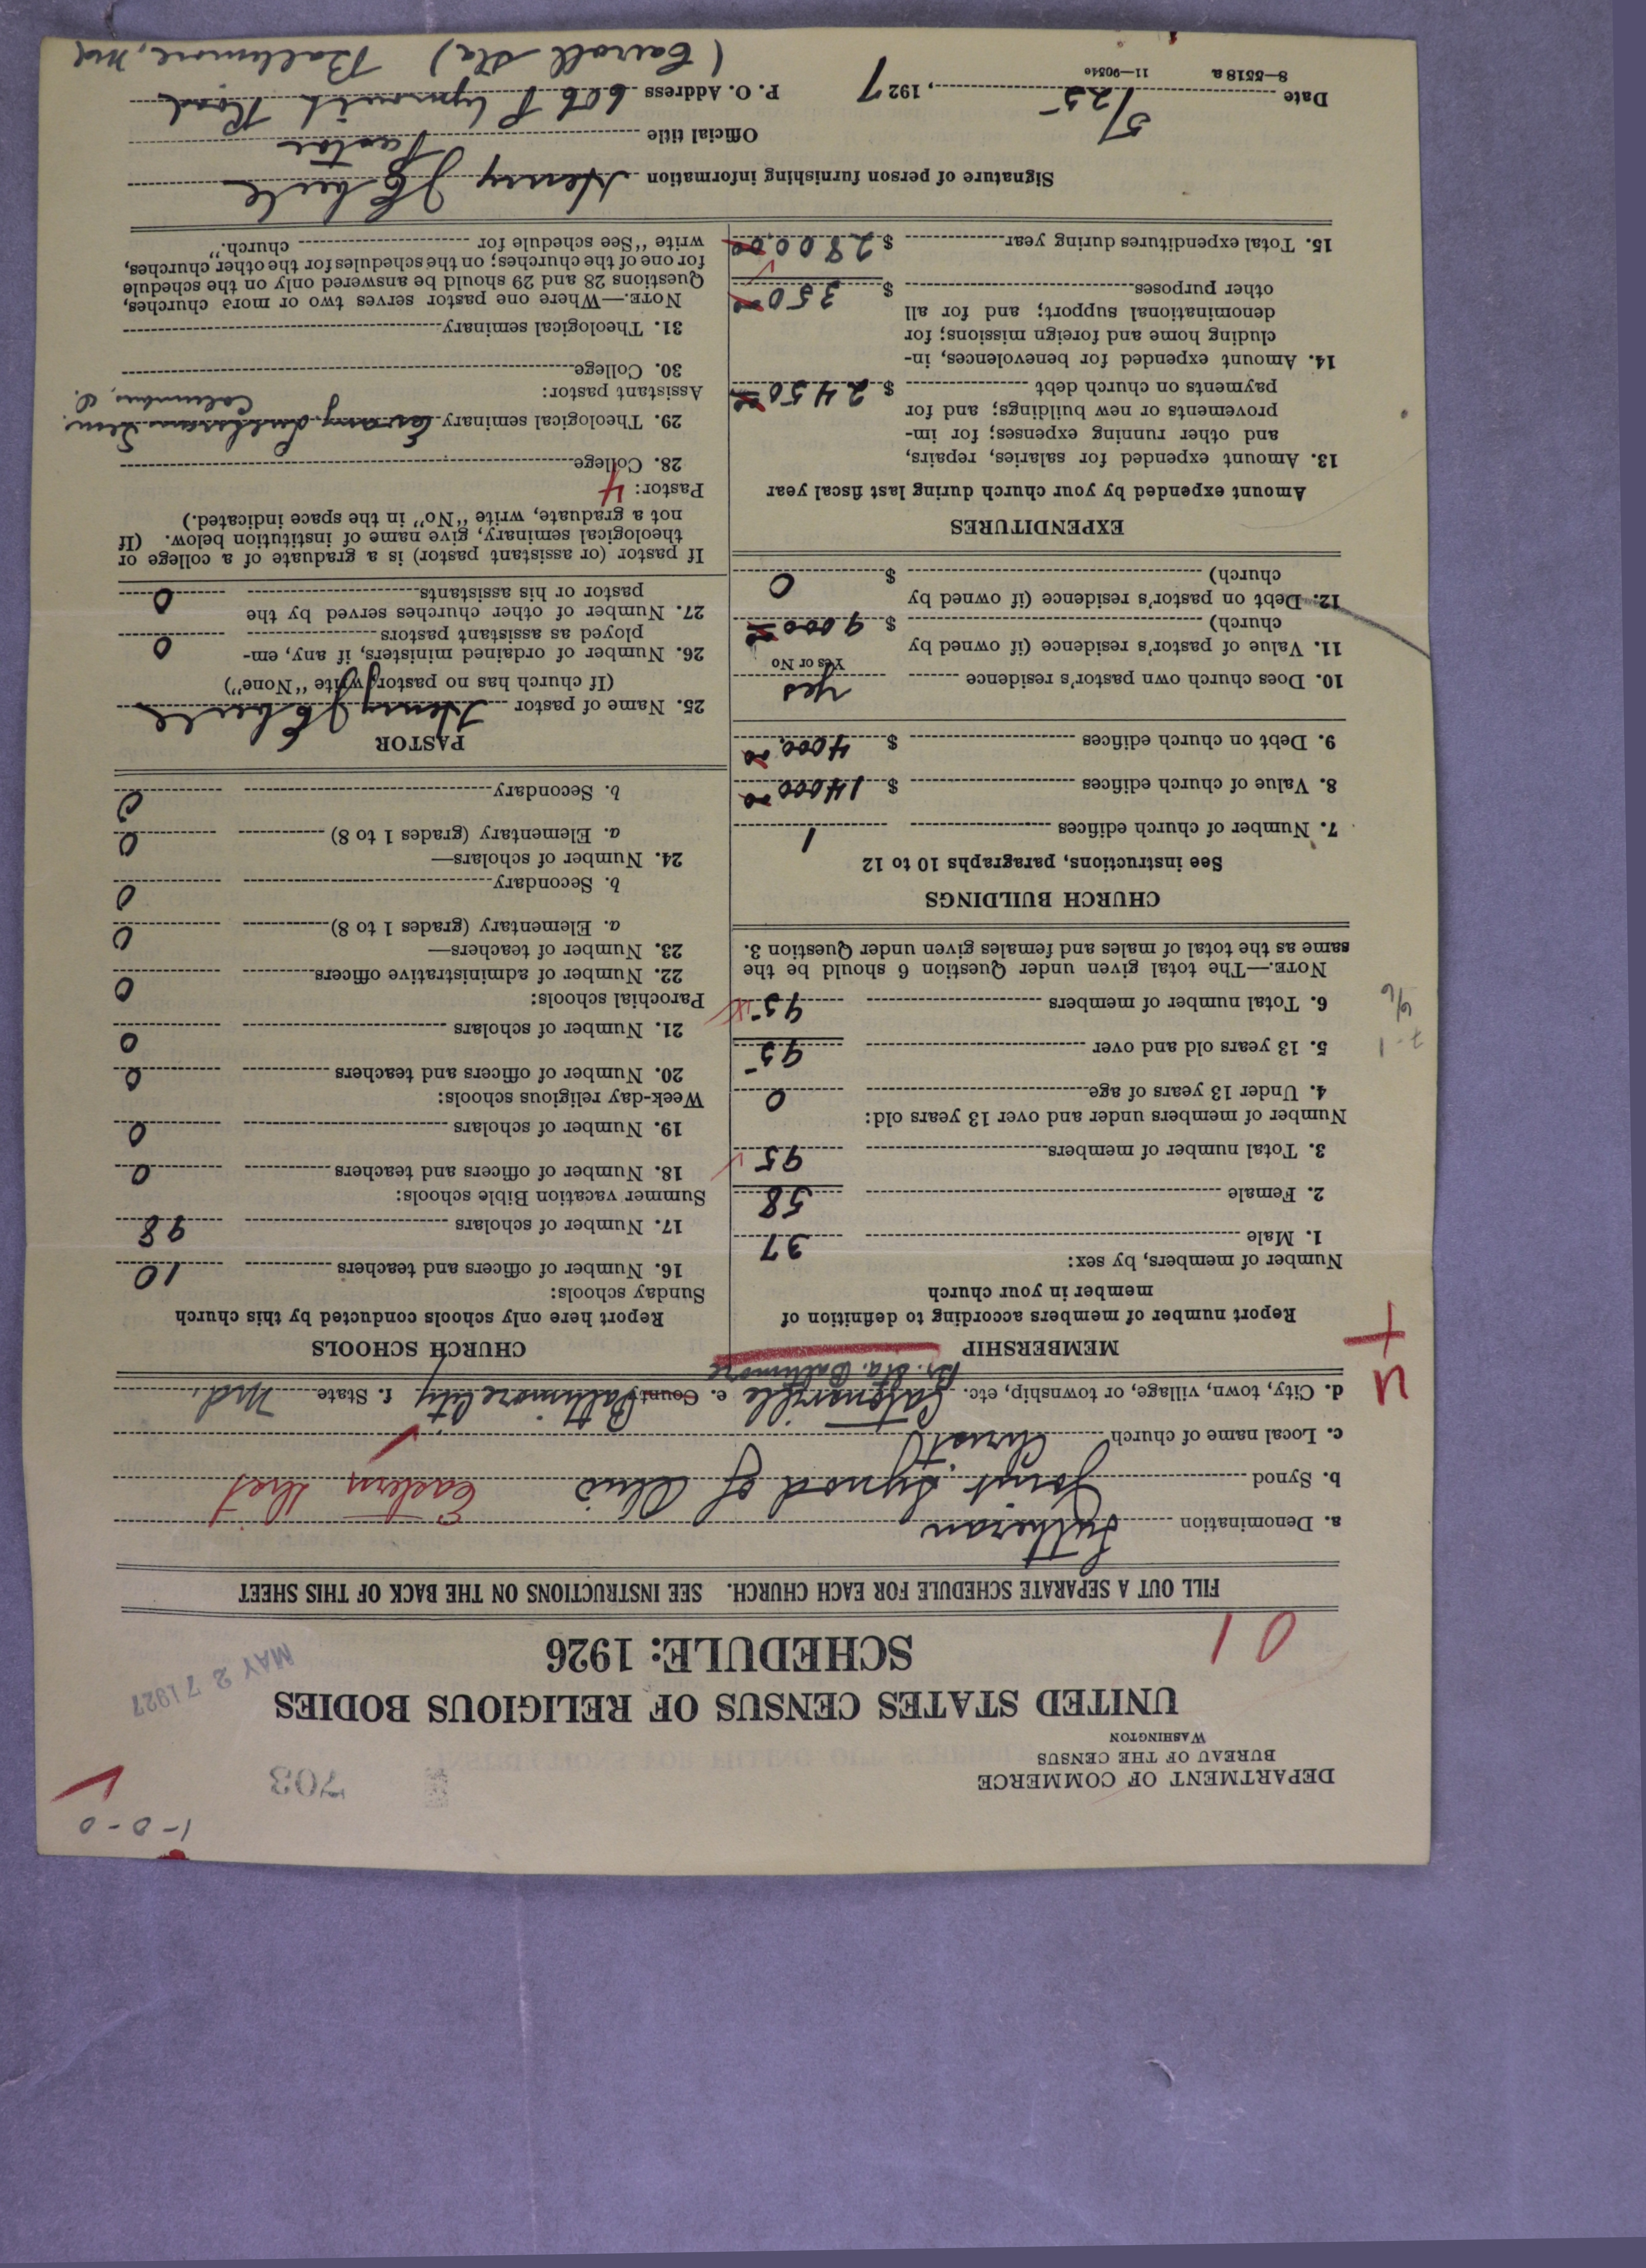 1-0-0
DEPARTMENT OF COMMERCE
BUREAU OF THE CENSUS
WASHINGTON
703
UNITED STATES CENSUS OF RELIGIOUS BODIES
SCHEDULE: 1926
MAY 27 1927
01
FILL OUT A SEPARATE SCHEDULE FOR EACH CHURCH. SEE INSTRUCTIONS ON THE BACK OF THIS SHEET
a. Denomination Lutheran
b. Synod Joint Synod of Ohio Eastern Dist
c. Local name of church Christ
d. City, town, village, or township, etc. Catonsville e. County Baltimore City f. State Md.
Br. Sta. Baltimore
U
+
MEMBERSHIP
Report number of members according to definition of
member in your church
Number of members, by sex:
1. Male 37
2. Female 58
3. Total number of members 95
Number of members under and over 13 years old:
4. Under 13 years of age 0
5. 13 years old and over 95
6. Total number of members 95
NOTE.—The total given under Question 6 should be the
same as the total of males and females given under Question 3.
CHURCH BUILDINGS
See instructions, paragraphs 10 to 12
7. Number of church edifices 1
8. Value of church edifices $ 14000.00
9. Debt on church edifices $ 4000.00
10. Does church own pastor's residence Yes
Yes or No
11. Value of pastor's residence (if owned by
church) $ 9000.00
12. Debt on pastor's residence (if owned by
church) $ 0
EXPENDITURES
Amount expended by your church during last fiscal year
13. Amount expended for salaries, repairs,
and other running expenses; for im-
provements or new buildings; and for
payments on church debt $ 2450.00
14. Amount expended for benevolences, in-
cluding home and foreign missions; for
denominational support; and for all
other purposes $ 350.00
15. Total expenditures during year $ 2800.00
CHURCH SCHOOLS
Report here only schools conducted by this church
Sunday schools:
16. Number of officers and teachers 10
17. Number of scholars 98
Summer vacation Bible schools:
18. Number of officers and teachers 0
19. Number of scholars 0
Week-day religious schools:
20. Number of officers and teachers 0
21. Number of scholars 0
Parochial schools:
22. Number of administrative officers 0
23. Number of teachers—
a. Elementary (grades 1 to 8) 0
b. Secondary 0
24. Number of scholars—
a. Elementary (grades 1 to 8) 0
b. Secondary 0
PASTOR
25. Name of pastor Henry J
(If church has no pastor, write "None")
26. Number of ordained ministers, if any, em-
ployed as assistant pastors 0
27. Number of other churches served by the
pastor or his assistants 0
If pastor (or assistant pastor) is a graduate of a college or
theological seminary, give name of institution below. (If
not a graduate, write "No" in the space indicated.)
Pastor: 4
28. College
29. Theological seminary Lutheran Sem.
Columbus, O.
Assistant pastor:
30. College
31. Theological seminary
NOTE.—Where one pastor serves two or more churches,
Questions 28 and 29 should be answered only on the schedule
for one of the churches; on the schedules for the other churches,
write "See schedule for church."
Signature of person furnishing information Henry J
Official title Pastor
Date 5/25, 1927 P. O. Address 606 Plymouth Road
(Carroll Sta) Baltimore, Md
8-5518 a 11-9054e